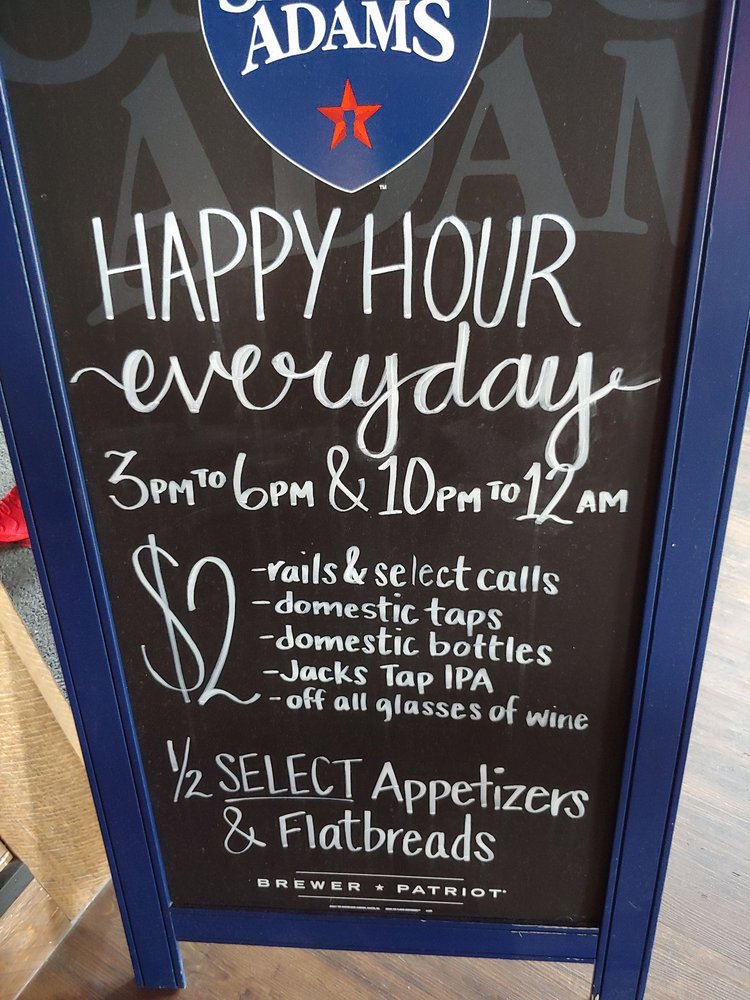 ADAMS
ADAM
™
HAPPY HOUR
everyday
3PM TO 6PM & 10PM TO 12 AM
$2
-rails & select calls
-domestic taps
-domestic bottles
-Jacks Tap IPA
-off all glasses of wine
1/2 SELECT Appetizers
& Flatbreads
BREWER ★ PATRIOT